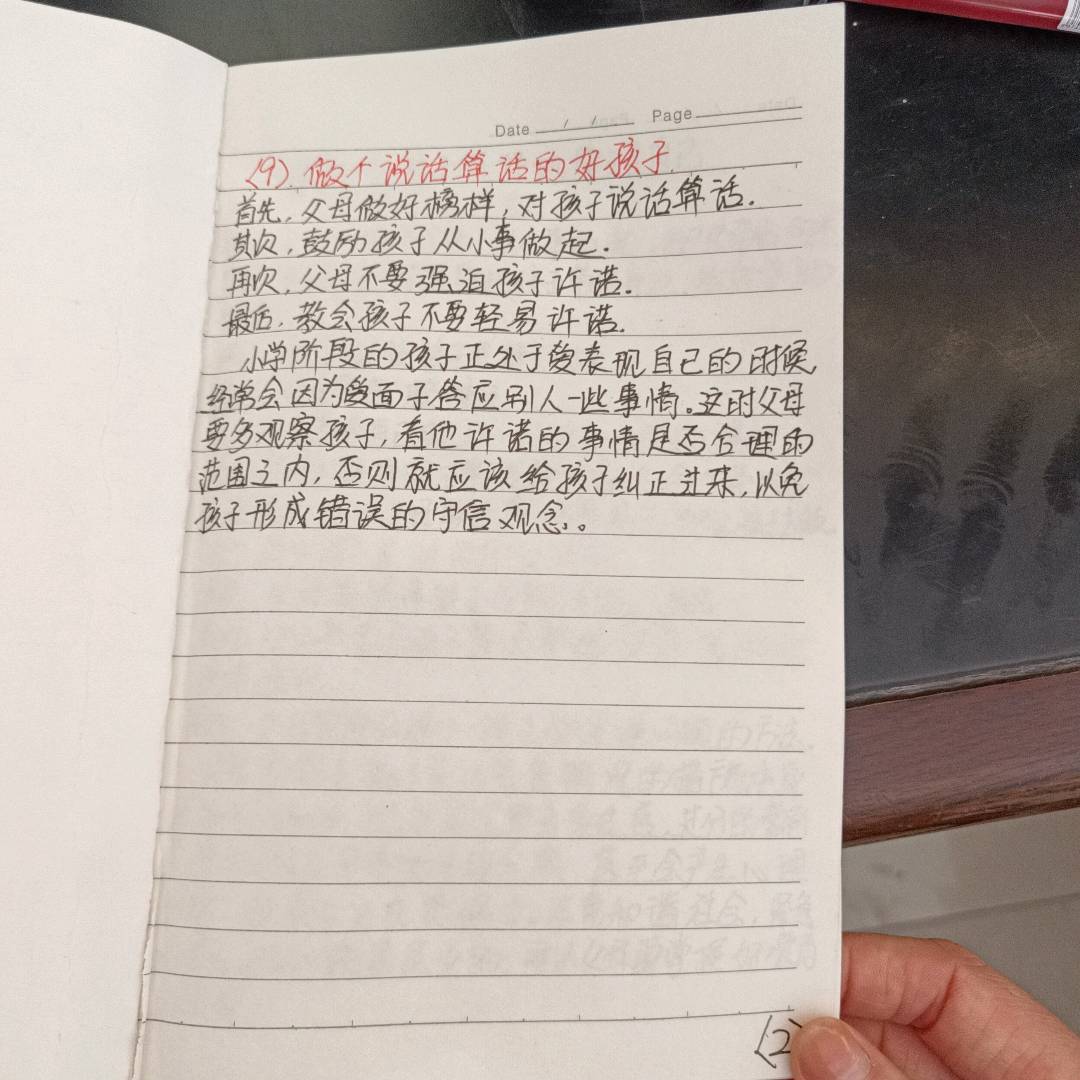 Date / / Page
(9). 做个说话算话的好孩子.
首先, 父母做好榜样, 对孩子说话算话.
其次, 鼓励孩子从小事做起.
再次, 父母不要强迫孩子许诺.
最后, 教会孩子不要轻易许诺.
小学阶段的孩子正处于爱表现自己的时候,
经常会因为爱面子答应别人一些事情。这时父母
要多观察孩子, 看他许诺的事情是否合理的
范围之内, 否则就应该给孩子纠正过来, 以免
孩子形成错误的守信观念。
(2)